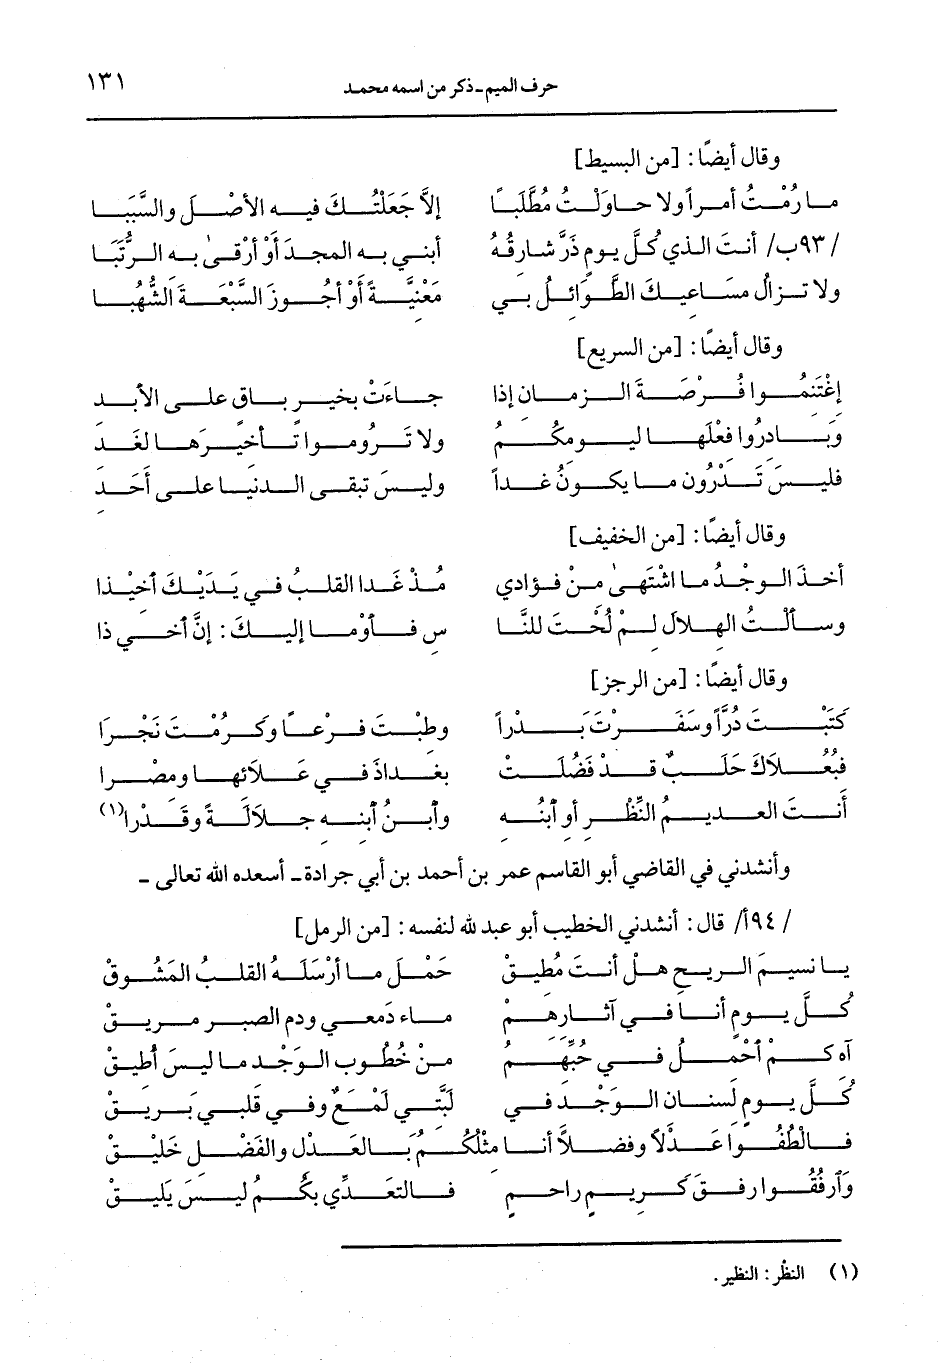 حرف الميم ـ ذكر من اسمه محمد ١٣١
وقال أيضًا: [من البسيط]
ما رُمْتُ أمراً ولا حاوَلْتُ مُطَّلَبًا إلاَّ جَعَلْتُكَ فيه الأصْلَ والسَّبَبَا
/٩٣ب/ أنتَ الذي كُلَّ يومٍ ذَرَّ شارقُهُ أبني به المجدَ أوْ أرْقىٰ به الرُّتَبَا
ولا تزالُ مسَاعيكَ الطَّوَائلُ بي مَعْنيَّةً أوْ أجُوزَ السَّبْعَةَ الشُّهُبَا
وقال أيضًا: [من السريع]
إغْتَنمُوا فُرْصَةَ الزمان إذا جاءَتْ بخيرٍ باقٍ على الأبد
وَبَادرُوا فعْلَها ليومكُمُ ولا تَرُومُوا تأخيرَها لغَد
فليسَ تَدْرُون ما يكونُ غداً وليسَ تبقى الدنيَا على أَحَدِ
وقال أيضًا: [من الخفيف]
أخذَ الوجْدُ ما اشْتَهىٰ منْ فؤادي مُذْ غَدا القلبُ في يَدَيْكَ أخيْذا
وسألتُ الهلالَ لمْ لُحْتَ للنَّا سِ فأوْما إليكَ: إنَّ أخي ذا
وقال أيضًا: [من الرجز]
كَتَبْتَ دُرَّاً وسَفَرْتَ بَدْراً وطبْتَ فرْعًا وكَرُمْتَ نَجْرَا
فبُعُلاَكَ حَلَبٌ قد فَضُلَتْ بغدادَ في عَلائها ومصْرا
أَنتَ العديمُ النِّظْرِ أو ٱبنُه وٱبنُ ٱبنه جلالَةً وقَدْرا(١)
وأنشدني في القاضي أبو القاسم عمر بن أحمد بن أبي جرادة ـ أسعده الله تعالى ـ
/٩٤أ/ قال: أنشدني الخطيب أبو عبد لله لنفسه: [من الرمل]
يا نسيمَ الريح هلْ أنتَ مُطيقْ حَمْلَ ما أرْسَلَهُ القلبُ المَشُوقْ
كُلَّ يومٍ أنا في آثارهمْ ماء دَمعي ودم الصبر مريقْ
آه كمْ أحْملُ في حُبِّهمُ منْ خُطُوب الوَجْد ما ليسَ أطيقْ
كُلَّ يومٍ لسنان الوَجْد في لَبَّتي لَمْعٌ وفي قلبي بَريقْ
فالطُفُوا عَدْلاً وفضلاً أنا مثْلُكُمُ بالعَدْل والفَضْل خَليْقْ
وَٱرفُقُوا رفقَ كريمٍ راحمٍ فالتعَدِّي بكُمُ ليسَ يَليقْ
(١) النظْر: النظير.